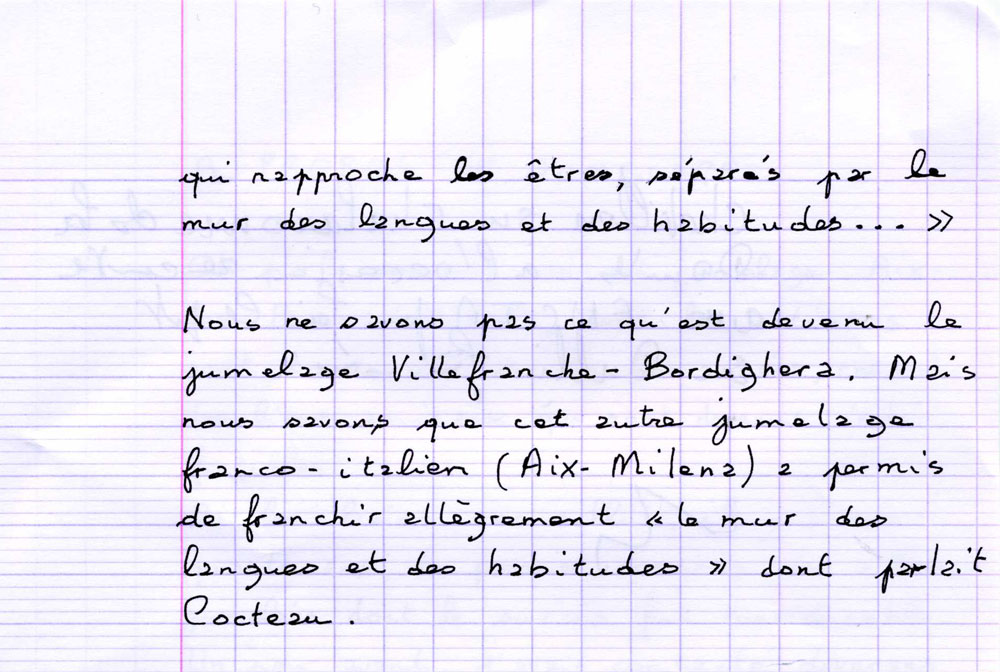 qui rapproche les êtres, séparés par le
mur des langues et des habitudes... »
Nous ne savons pas ce qu'est devenu le
jumelage Villefranche - Bordighera. Mais
nous savons que cet autre jumelage
franco - italien (Aix - Milena) a permis
de franchir allègrement « le mur des
langues et des habitudes » dont parlait
Cocteau.